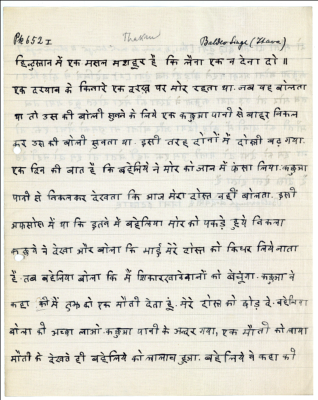 PK 652 I Thakur Baldeo Singh (Etawa)
हिन्दुस्तान में एक मसल मशहूर है कि लेना एक न देना दो ॥
एक दरयाव के किनारे एक दरख़ पर मोर रहता था. जब वह बोलता
था तो उस की बोली सुनने के लिये एक कछुआ पानी से बाहर निकल
कर उस की बोली सुनता था. इसी तरह दोनों में दोस्ती बढ़ गया.
एक दिन की बात है कि बहेलिये ने मोर को जाल में फंसा लिया. कछुआ
पानी से निकलकर देखता कि आज मेरा दोस्त नहीं बोलता. इसी
अफ़सोस में था कि इतने में बहेलिया मोर को पकड़े हुये निकला
कछुये ने देखा और बोला कि भाई मेरे दोस्त को किधर लिये जाता
है. तब बहेलिया बोला कि मैं शिकारखानेवालों को बेचूंगा. कछुआ ने
कहा की में तुझ को एक मोती देता हूँ. मेरे दोस्त को छोड़ दे. बहेलिया
बोला की अच्छा लाओ. कछुआ पानी के अन्दर गया, एक मोती को लाया
मोती के देखते ही बहेलिये को लालच हुआ. बहेलिये ने कहा की